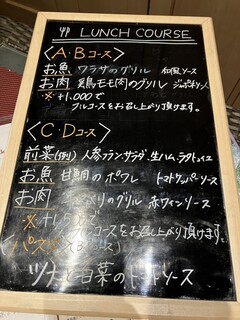 LUNCH COURSE
〈A・Bコース〉
お魚 ワラサのグリル 和風ソース
お肉 鶏モモ肉のグリル
※+1,000で
フルコースをお召し上がり頂けます。
〈C・Dコース〉
前菜(例) 人参フラン・サラダ・生ハム・ラタトゥイユ
お魚 甘鯛のポワレ トマトケッパーソース
お肉 のグリル 赤ワインソース
コースをお召し上がり頂けます。
ツナと白菜の ソース